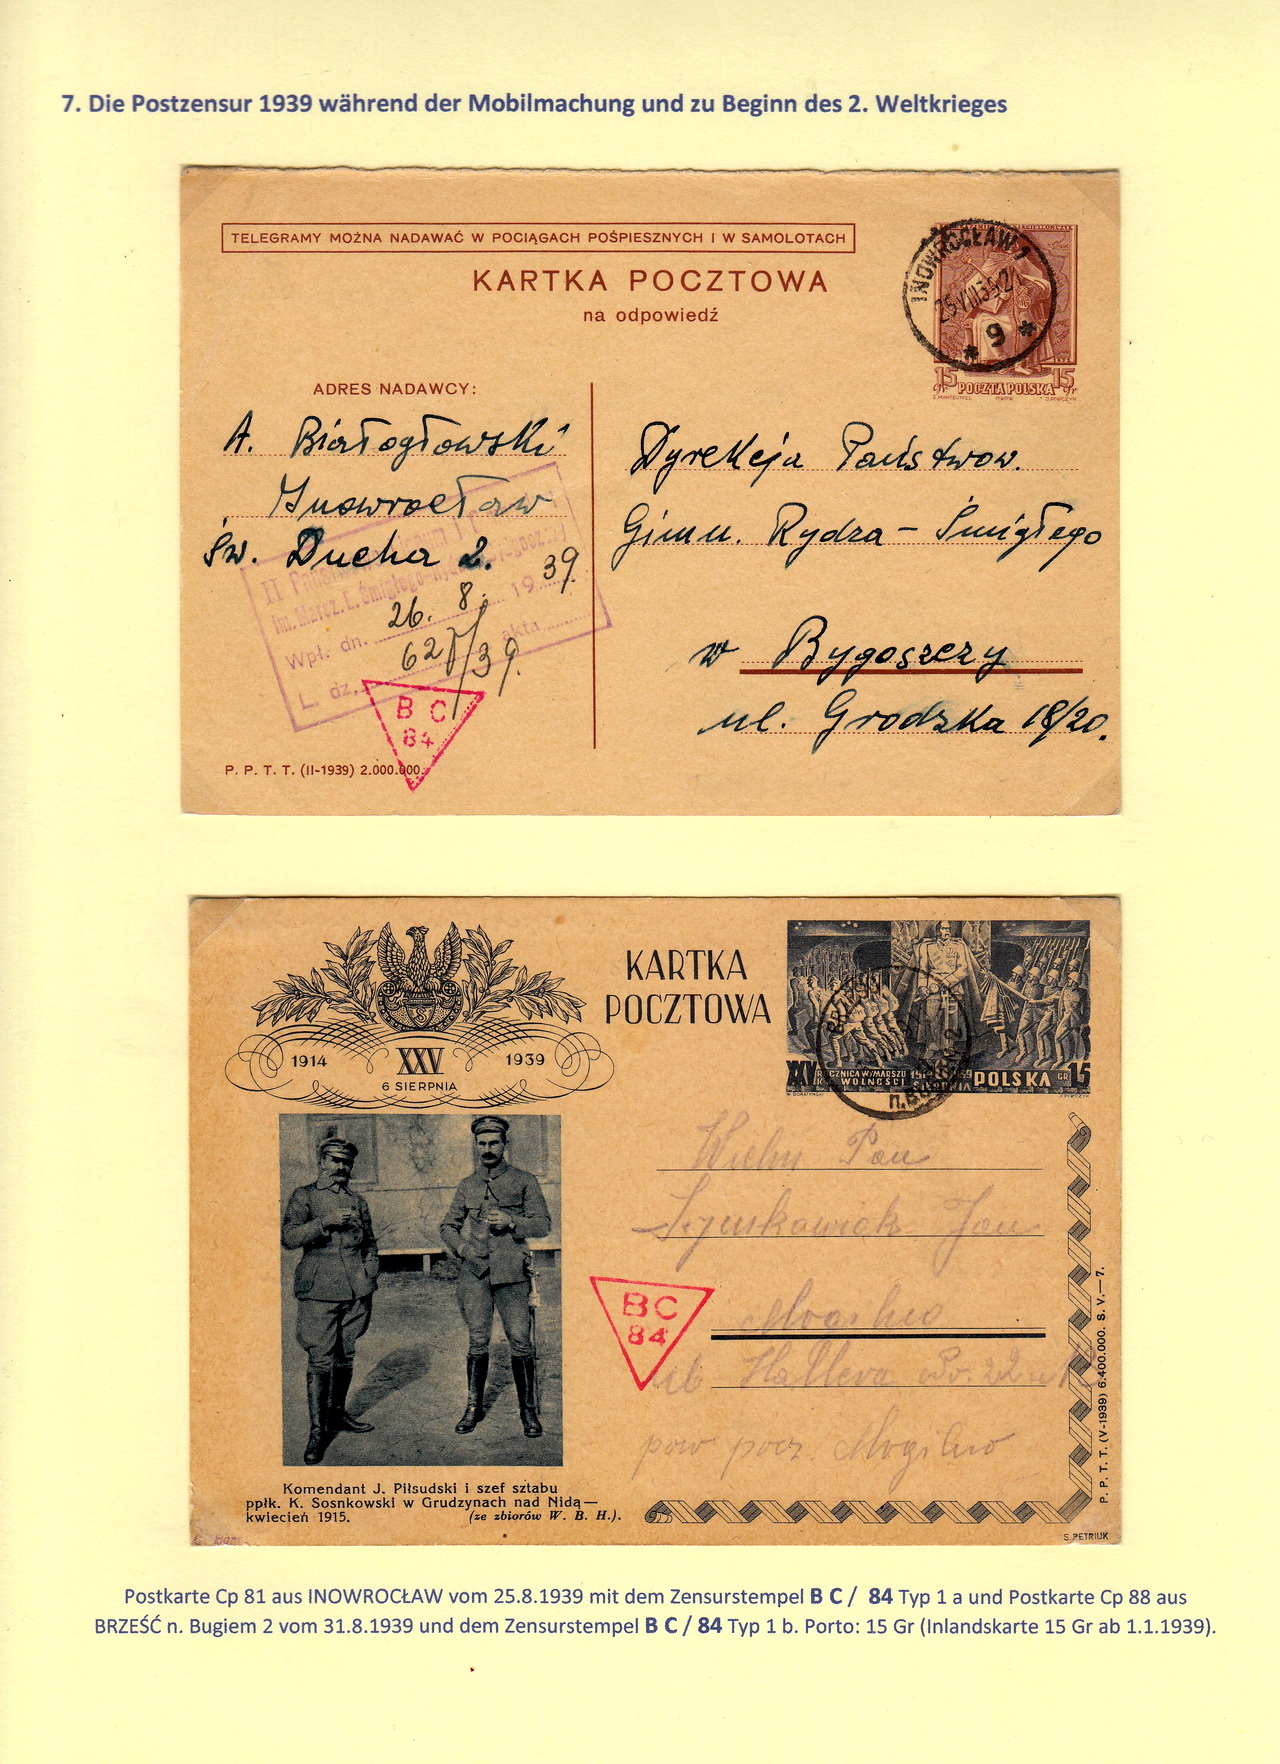 7. Die Postzensur 1939 während der Mobilmachung und zu Beginn des 2. Weltkrieges
TELEGRAMY MOŻNA NADAWAĆ W POCIĄGACH POŚPIESZNYCH I W SAMOLOTACH
KARTKA POCZTOWA
na odpowiedź
INOWROCŁAW 1
25.VIII 39.21
* 9 *
15 gr POCZTA POLSKA 15 gr
ADRES NADAWCY:
A. Białogłowski
Inowrocław
Św. Ducha 2.
Dyrekcja Państwow.
Gimn. Rydza-Śmigłego
w Bygoszczy
ul. Grodzka 18/20.
II
Wpł. dn. 26. 8. 1939
L. dz. akta
B C
84
P. P. T. T. (II-1939) 2.000.000.
KARTKA
POCZTOWA
1914 XXV 1939
6 SIERPNIA
BRZEŚĆ
n. BUGIEM 2
XXV ROCZNICA WYMARSZU 1914-1939
WOLNOŚCI SIERPNIA POLSKA GR 15
Pan
Jan
B C
84
ul Hallera
pow pocz. Mogilno
P. P. T. T. (V-1939) 6.400.000. S. V.—7.
Komendant J. Piłsudski i szef sztabu
ppłk. K. Sosnkowski w Grudzynach nad Nidą—
kwiecień 1915. (ze zbiorów W. B. H.).
S. PETRIUK
Postkarte Cp 81 aus INOWROCŁAW vom 25.8.1939 mit dem Zensurstempel B C / 84 Typ 1 a und Postkarte Cp 88 aus
BRZEŚĆ n. Bugiem 2 vom 31.8.1939 und dem Zensurstempel B C / 84 Typ 1 b. Porto: 15 Gr (Inlandskarte 15 Gr ab 1.1.1939).